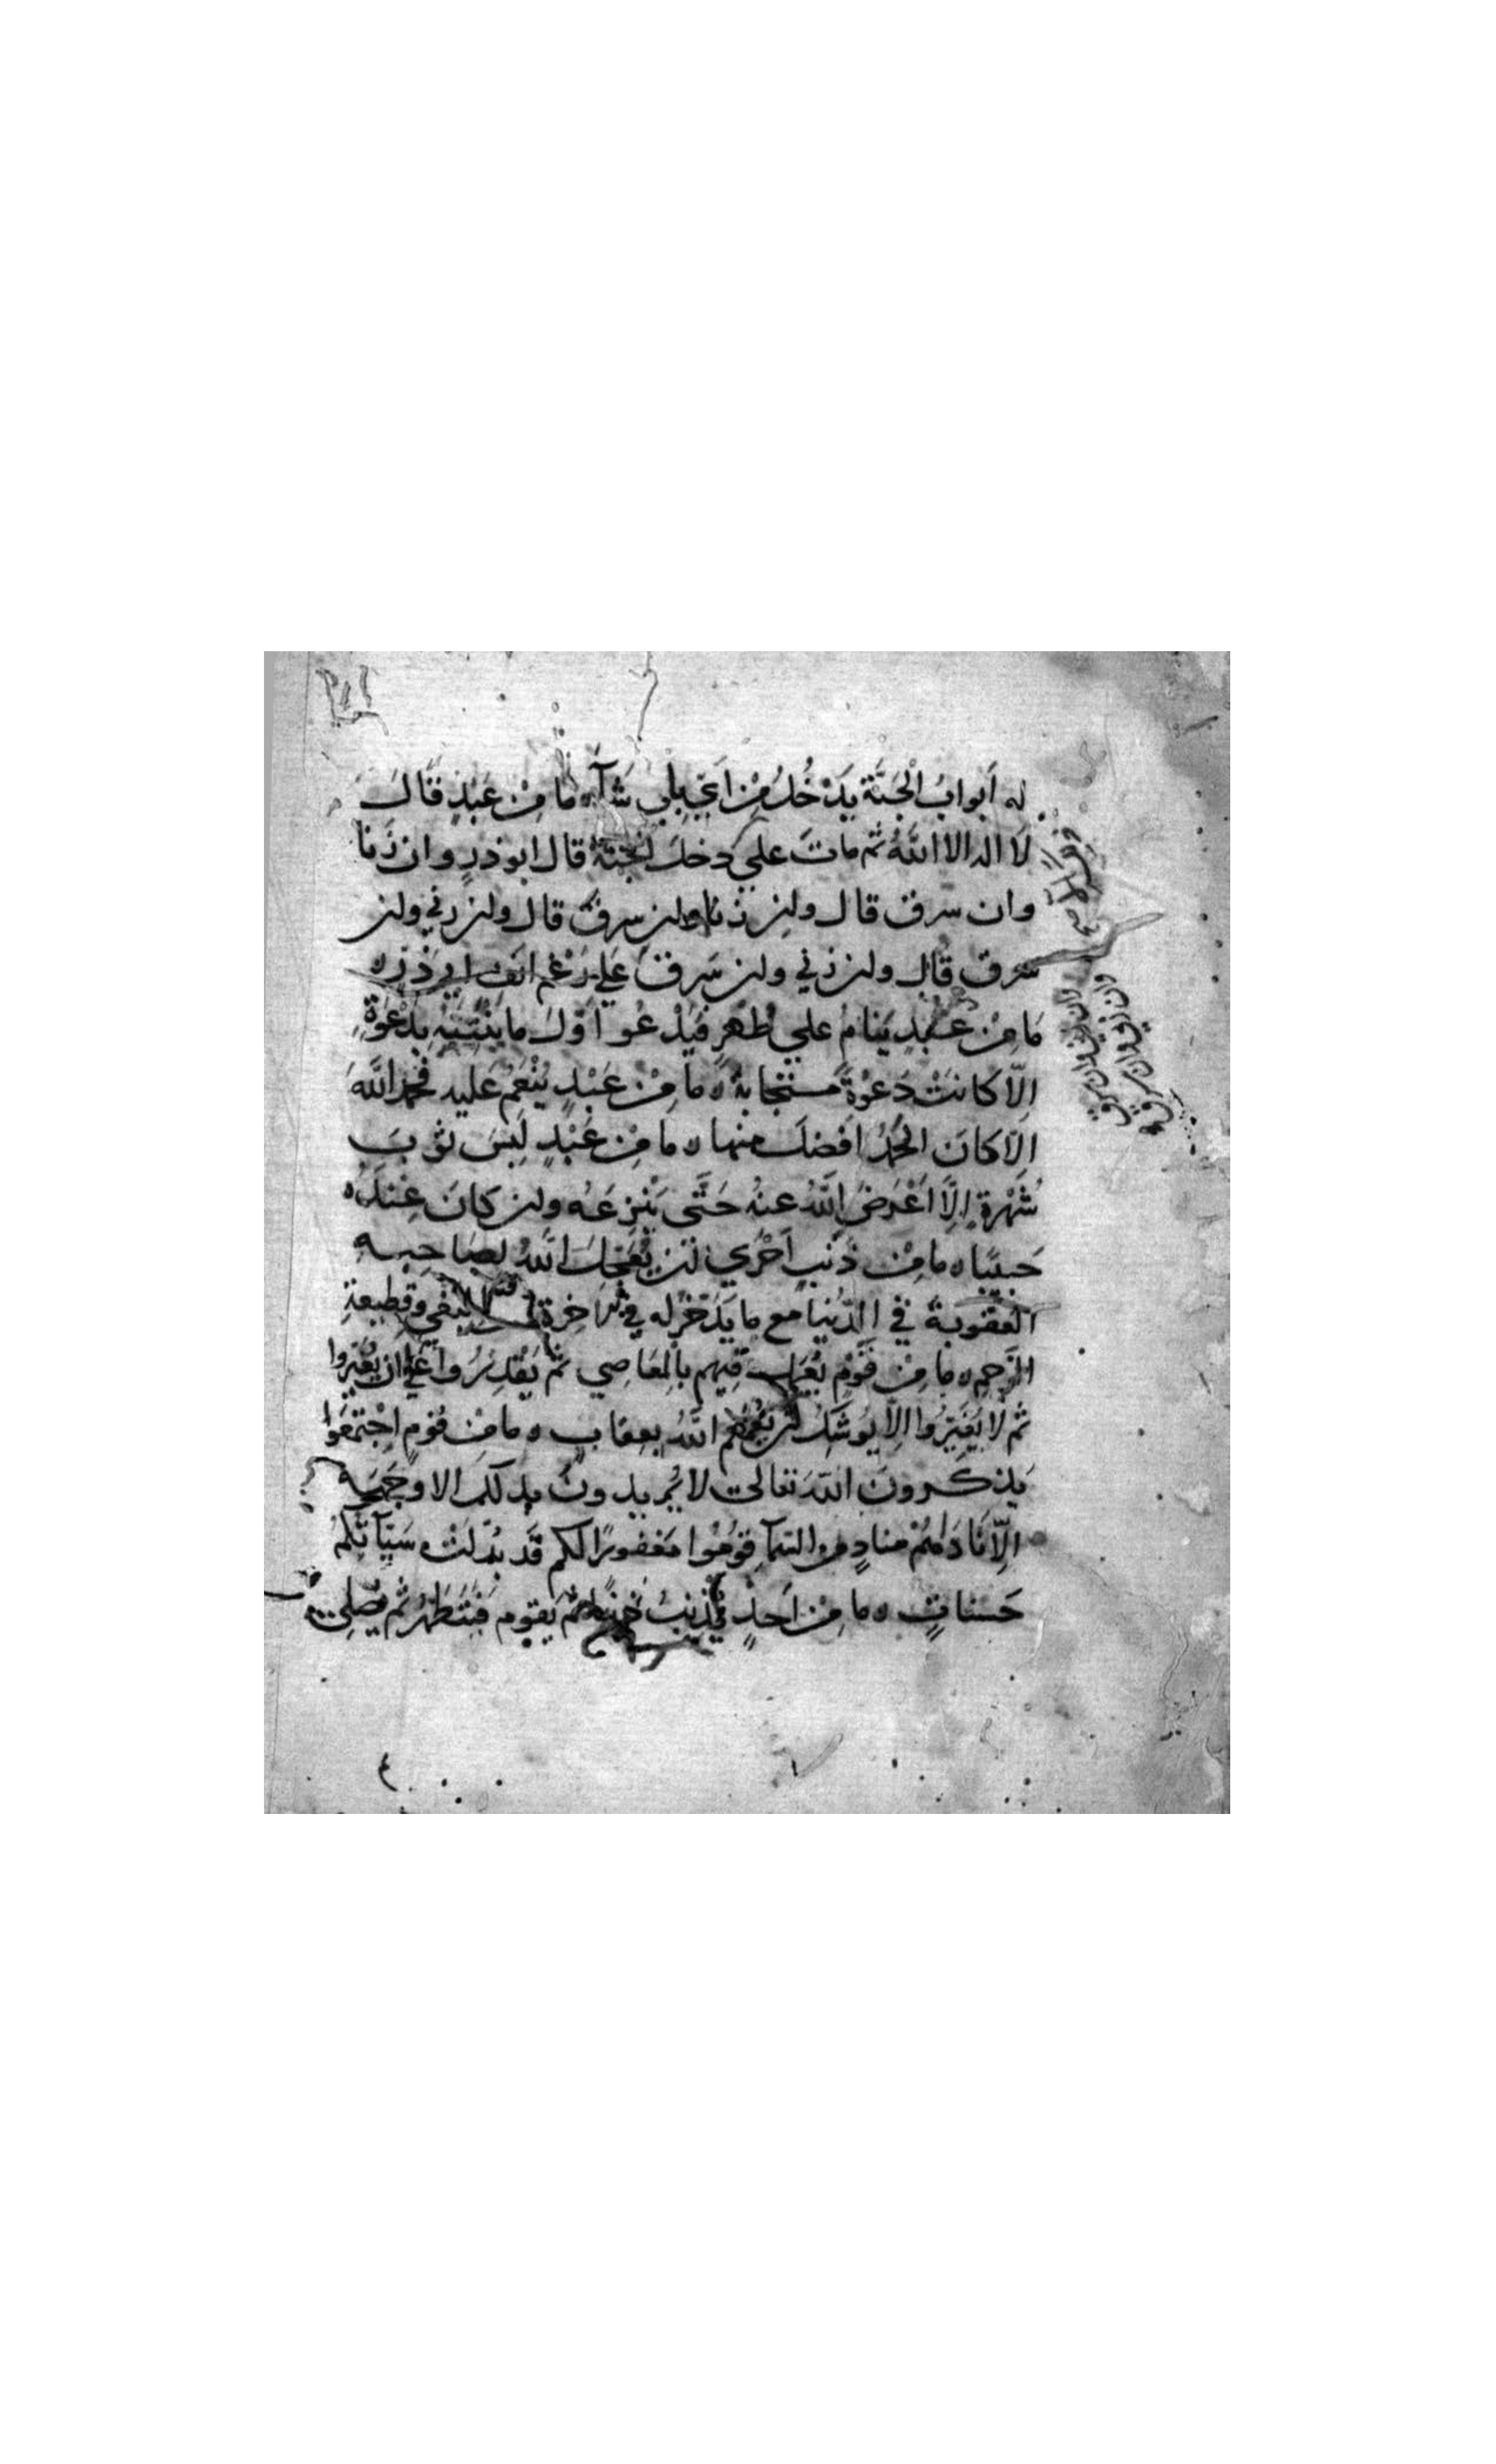 له أَبوابُ الْجَنَّة يَدْخُلُ مِنْ اَيِّ بابٍ شآء ه ما مِنْ عَبْدٍ قَالَ
لَا اله الا اللَّهُ ثُم ماتَ علي دخل الجنّة قال ابو ذرٍ وان زَنا
وان سرق قال وان زنا وان سرق قال وان زني وان
سرق قال وان زني وان سَرقَ عَلي رَغْم انف ابي ذرٍ ه
مَا مِنْ عَبْدٍ يَنامُ علي طُهْرٍ فَيَدْعُو اوّلَ ما يَنْتَبِهُ بِدَعْوَةٍ
الّا كانَتْ دَعْوَةً مستجابةً ه ما مِنْ عَبْدٍ يُنْعَمُ عَليه فحمد اللَّهَ
الّا كانَ الحَمْدُ افضلَ منها ه ما مِنْ عَبْدٍ لَبِسَ ثوبَ
شُهْرةٍ اِلّا اَعْرَضَ اللَّهُ عنهُ حَتَّى يَنْزِعَهُ وان كانَ عِندَهُ
حَبيبًا ه ما مِنْ ذَنْبٍ اَحْرَي ان يُعَجِّلَ اللَّهُ لصاحِبِه
العقوبةَ في الدّنيا مع ما يَدّخرُ له في الاخِرة من البغي وقطيعةِ
الرَّحِم ه ما مِنْ قَوْمٍ يُعْمَل فيهم بالمعَاصِي ثمَّ يَقْدِرُوا عَلَى ان يُغَيّروا
ثم لَا يُغَيِّرُوا الّا يُوشَكُ ان يَعُمَّهُم اللَّهُ بعقابٍ ه ما مِنْ قومٍ اجْتمَعُوا
يذكرونَ اللهَ تعالى لا يُريدونَ بذلكَ الا وجهَه
الّا نادَاهُمْ منادٍ من السّمآ قُومُوا مَغفورًا لكم قَد بُدّلَتْ سَيّآتكمْ
حَسناتٍ ه ما مِنْ اَحدٍ يُذنِبُ ذنبًا ثم يَقوم فيَتَطهّرُ ثم يُصَلي